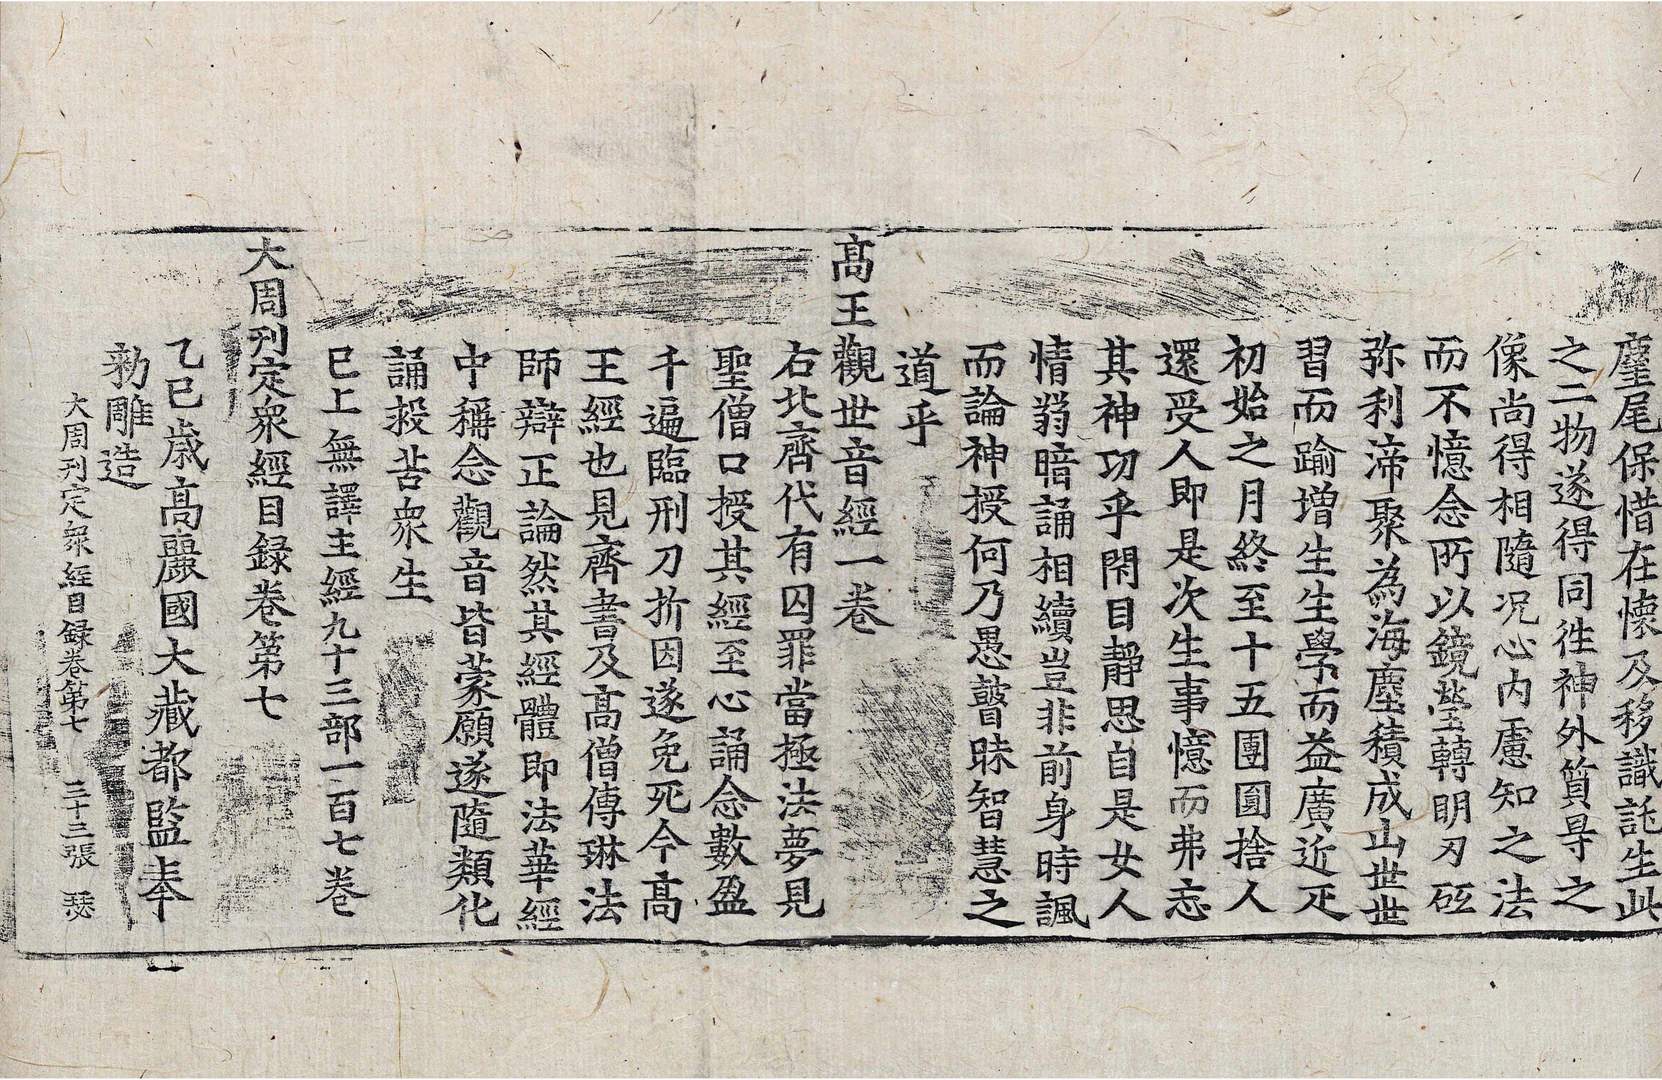 麈尾保惜在懷及移識託生此
之二物遂得同徃神外質㝵之
像尚得相隨况心内慮知之法
而不憶念所以鏡瑩轉明刃砥
弥利渧聚為海塵積成山世世
習而踰增生生學而益廣近疋
初始之月終至十五團圎捨人
還受人即是次生事憶而弗忘
其神功乎閑目靜思自是女人
情翦暗誦相續豈非前身時諷
而論神授何乃愚瞽昧智慧之
道乎
髙王觀世音經一卷
右北齊代有囚罪當極法夢見
聖僧口授其經至心誦念數盈
千遍臨刑刀折因遂免死今髙
王經也見齊書及髙僧傳琳法
師辯正論然其經體即法華經
中稱念觀音皆蒙願遂隨類化
誦救苦衆生
已上無譯主經九十三部一百七卷
大周刊定衆經目録卷第七
乙巳歳髙麗國大藏都監奉
勑雕造
大周刊定衆經目録卷第七 三十三張 瑟